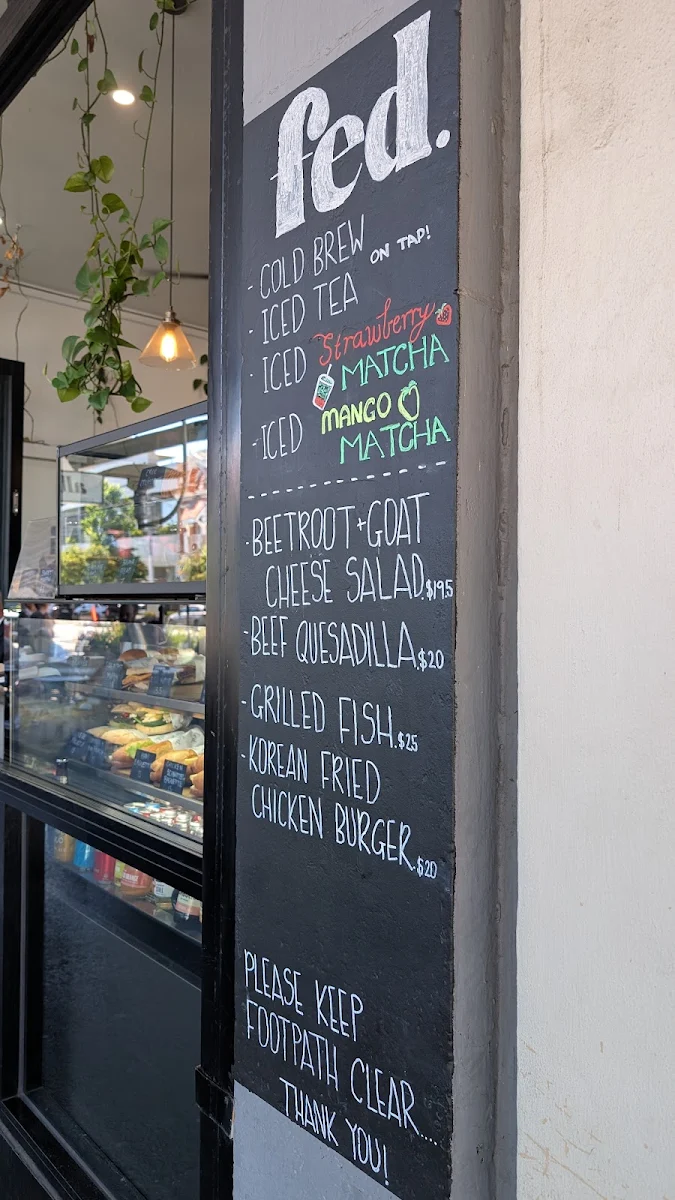 fed.
- COLD BREW ON TAP!
- ICED TEA
- ICED Strawberry
MATCHA
- ICED MANGO
MATCHA
- BEETROOT + GOAT
CHEESE SALAD. $19.5
- BEEF QUESADILLA. $20
- GRILLED FISH. $25
- KOREAN FRIED
CHICKEN BURGER. $20
PLEASE KEEP
FOOTPATH CLEAR....
THANK YOU!